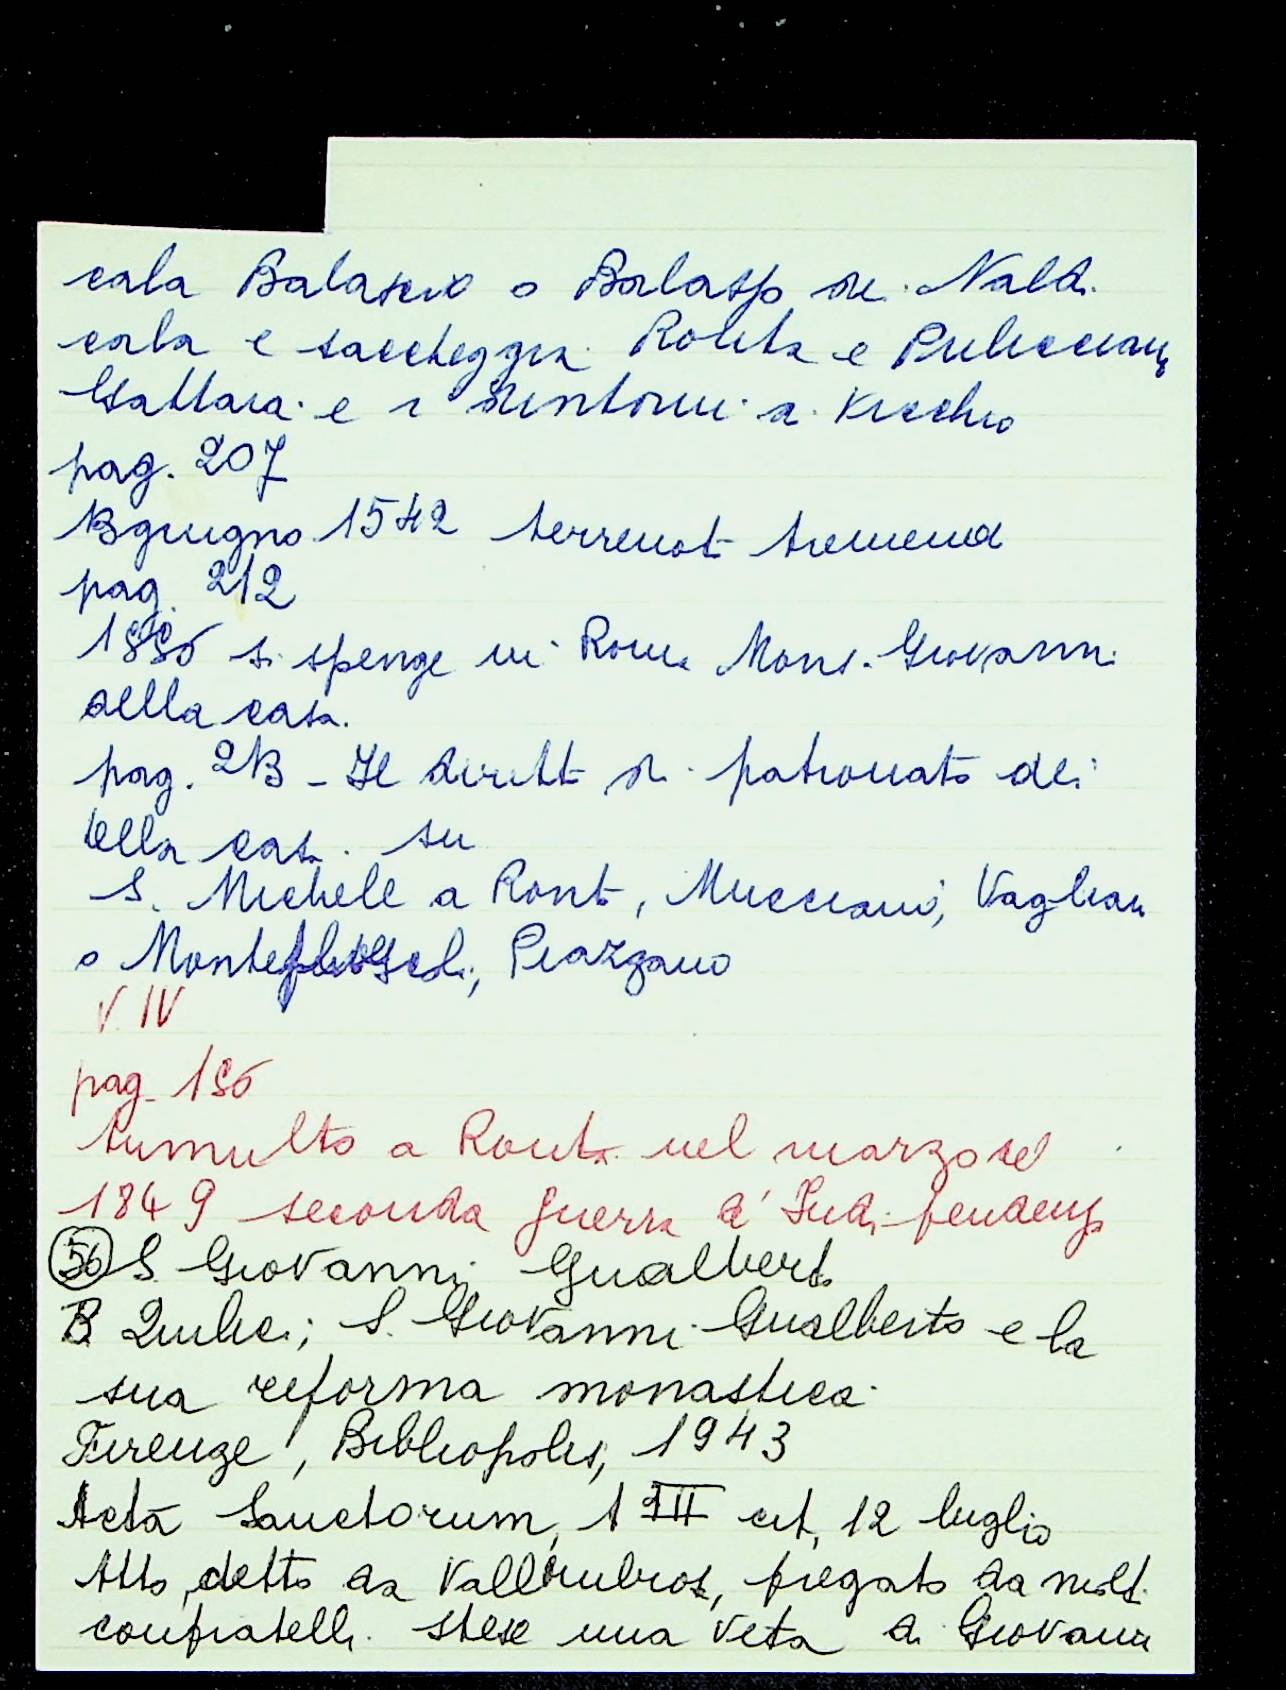 cala Balascio o Balasso di Naldi
cala e saccheggia Ronta e Pulicciano
Gattaia e i dintorni di Vicchio
pag. 207
13 giugno 1542 terremoto tremendo
pag. 212
si spenge in Roma Mons. Giovanni
della casa.
pag. 213 - Il diritto di patronato dei
della casa su
S. Michele a Ronta, Mucciano, Vagliano
o Piazzano
V. IV
pag. 156
tumulto a Ronta nel marzo del
1849 seconda guerra d'Indipendenza
56 S. Giovanni Gualberto
B Quilici; S. Giovanni Gualberto e la
sua reforma monastica
Firenze, Bibliopolis, 1943
Acta Sanctorum, t III cit, 12 luglio
Atto, detto da Vallombrosa, pregato da molti
confratelli stese una Vita di Giovanni